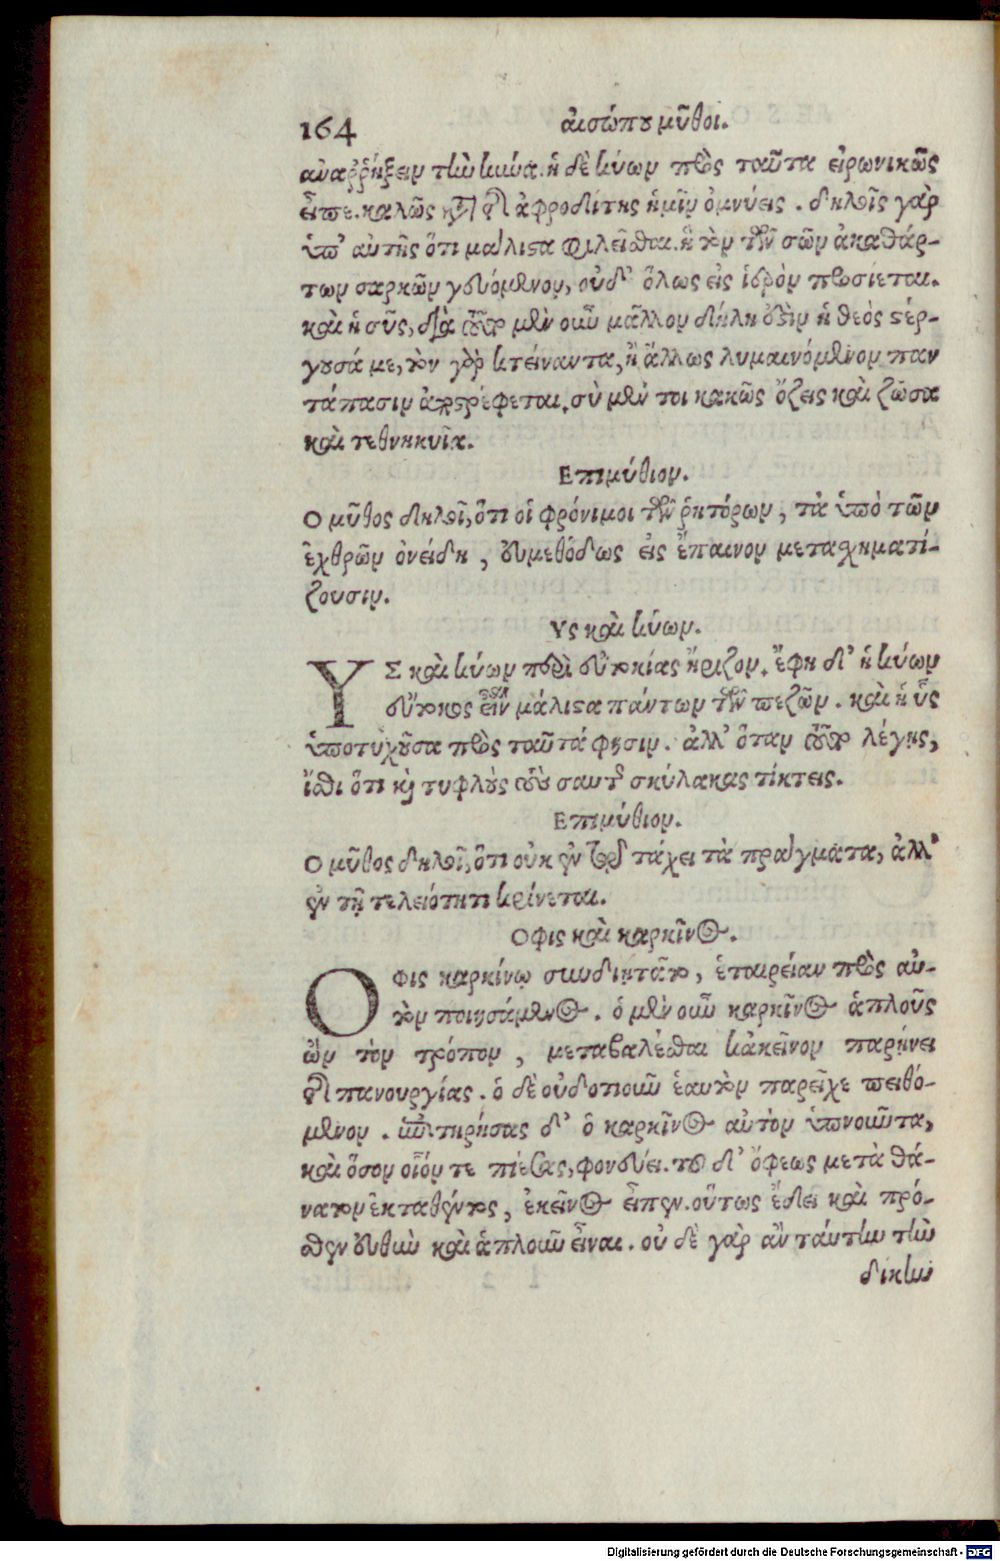 164 αἰσώπου μῦθοι.
ἀναῤῥήξειν τὴν κύνα. ἡ δὲ κύων πρὸς ταῦτα εἰρωνικῶς
εἶπε. καλῶς κατὰ τῆς ἀφροδίτης ἡμῖν ὀμνύεις. δηλοῖς γὰρ
ὑπ' αὐτῆς ὅτι μάλιστα φιλεῖσθαι. ἣ τὸν τῶν σῶν ἀκαθάρ-
των σαρκῶν γευόμενον, οὐδ' ὅλως εἰς ἱερὸν προσίεται.
καὶ ἡ σῦς, διὰ τοῦτο μὲν οὖν μᾶλλον δήλη ἐστὶν ἡ θεὸς στέρ-
γουσά με, τὸν γὰρ κτείναντα, ἢ ἄλλως λυμαινόμενον παν
τάπασιν ἀποστρέφεται. σὺ μέν τοι κακῶς ὄζεις καὶ ζῶσα
καὶ τεθνηκυῖα.
Επιμύθιον.
Ο μῦθος δηλοῖ, ὅτι οἱ φρόνιμοι τῶν ῥητόρων, τὰ ὑπὸ τῶν
ἐχθρῶν ὀνείδη, εὐμεθόδως εἰς ἔπαινον μετασχηματί-
ζουσιν.
Υς καὶ κύων.
ΥΣ καὶ κύων περὶ εὐτοκίας ἤριζον. ἔφη δ' ἡ κύων
εὔτοκος εἶναι μάλιστα πάντων τῶν πεζῶν. καὶ ἡ ὗς
ὑποτυχοῦσα πρὸς ταῦτά φησιν. ἀλλ' ὅταν τοῦτο λέγῃς,
ἴσθι ὅτι καὶ τυφλοὺς τοὺς σαυτῆς σκύλακας τίκτεις.
Επιμύθιον.
Ο μῦθος δηλοῖ, ὅτι οὐκ ἐν τῷ τάχει τὰ πράγματα, ἀλλ'
ἐν τῇ τελειότητι κρίνεται.
Οφις καὶ καρκῖνος.
Οφις καρκίνῳ συνδιῃτᾶτο, ἑταιρείαν πρὸς αὐ-
τὸν ποιησάμενος. ὁ μὲν οὖν καρκῖνος ἁπλοῦς
ὢν τὸν τρόπον, μεταβαλέσθαι κἀκεῖνον παρῄνει
τῆς πανουργίας. ὁ δὲ οὐδοτιοῦν ἑαυτὸν παρεῖχε πειθό-
μενον. ἐπιτηρήσας δ' ὁ καρκῖνος αὐτὸν ὑπνοῦντα,
καὶ ὅσον οἷόν τε πιέσας, φονεύει. τοῦ δ' ὄφεως μετὰ θά-
νατον ἐκταθέντος, ἐκεῖνος εἶπεν. οὕτως ἔδει καὶ πρό-
σθεν εὐθὺν καὶ ἁπλοῦν εἶναι. οὐ δὲ γὰρ ἂν ταύτην τὴν
δίκην
Digitalisierung gefördert durch die Deutsche Forschungsgemeinschaft - DFG